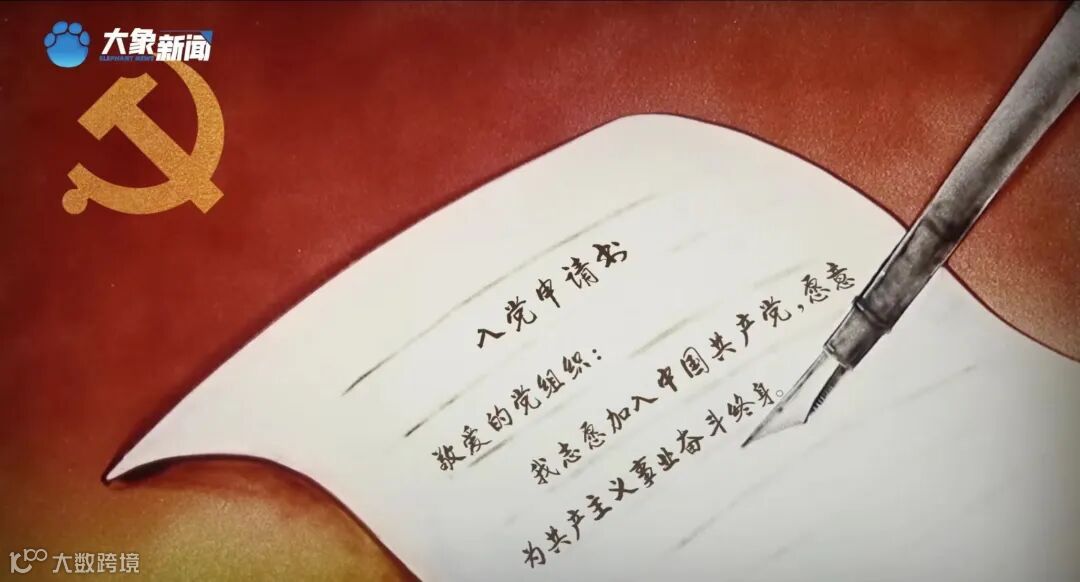 大象新闻
ELEPHANT NEWS
入党申请书
敬爱的党组织：
我志愿加入中国共产党，愿意
为共产主义事业奋斗终身。
大数跨境